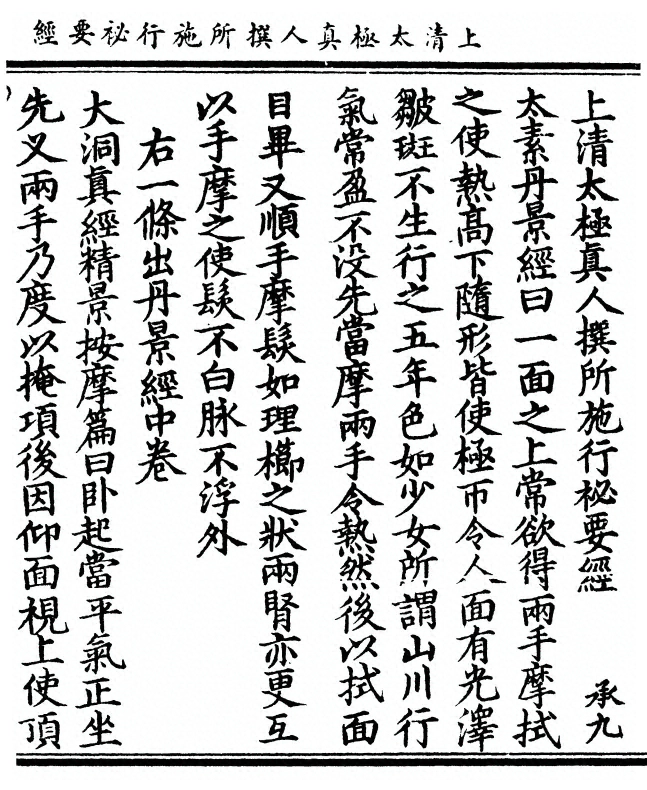 上清太極真人撰所施行祕要經
上清太極真人撰所施行祕要經 承九
太素丹景經曰一面之上常欲得兩手摩拭
之使熱髙下隨形皆使極帀令人面有光澤
皺斑不生行之五年色如少女所謂山川行
氣常盈不没先當摩兩手令熱然後以拭面
目畢又順手摩髮如理櫛之狀兩臂亦更互
以手摩之使髮不白脉不浮外
右一條出丹景經中卷
大洞真經精景按摩篇曰卧起當平氣正坐
先叉兩手乃度以掩項後因仰面視上使頂